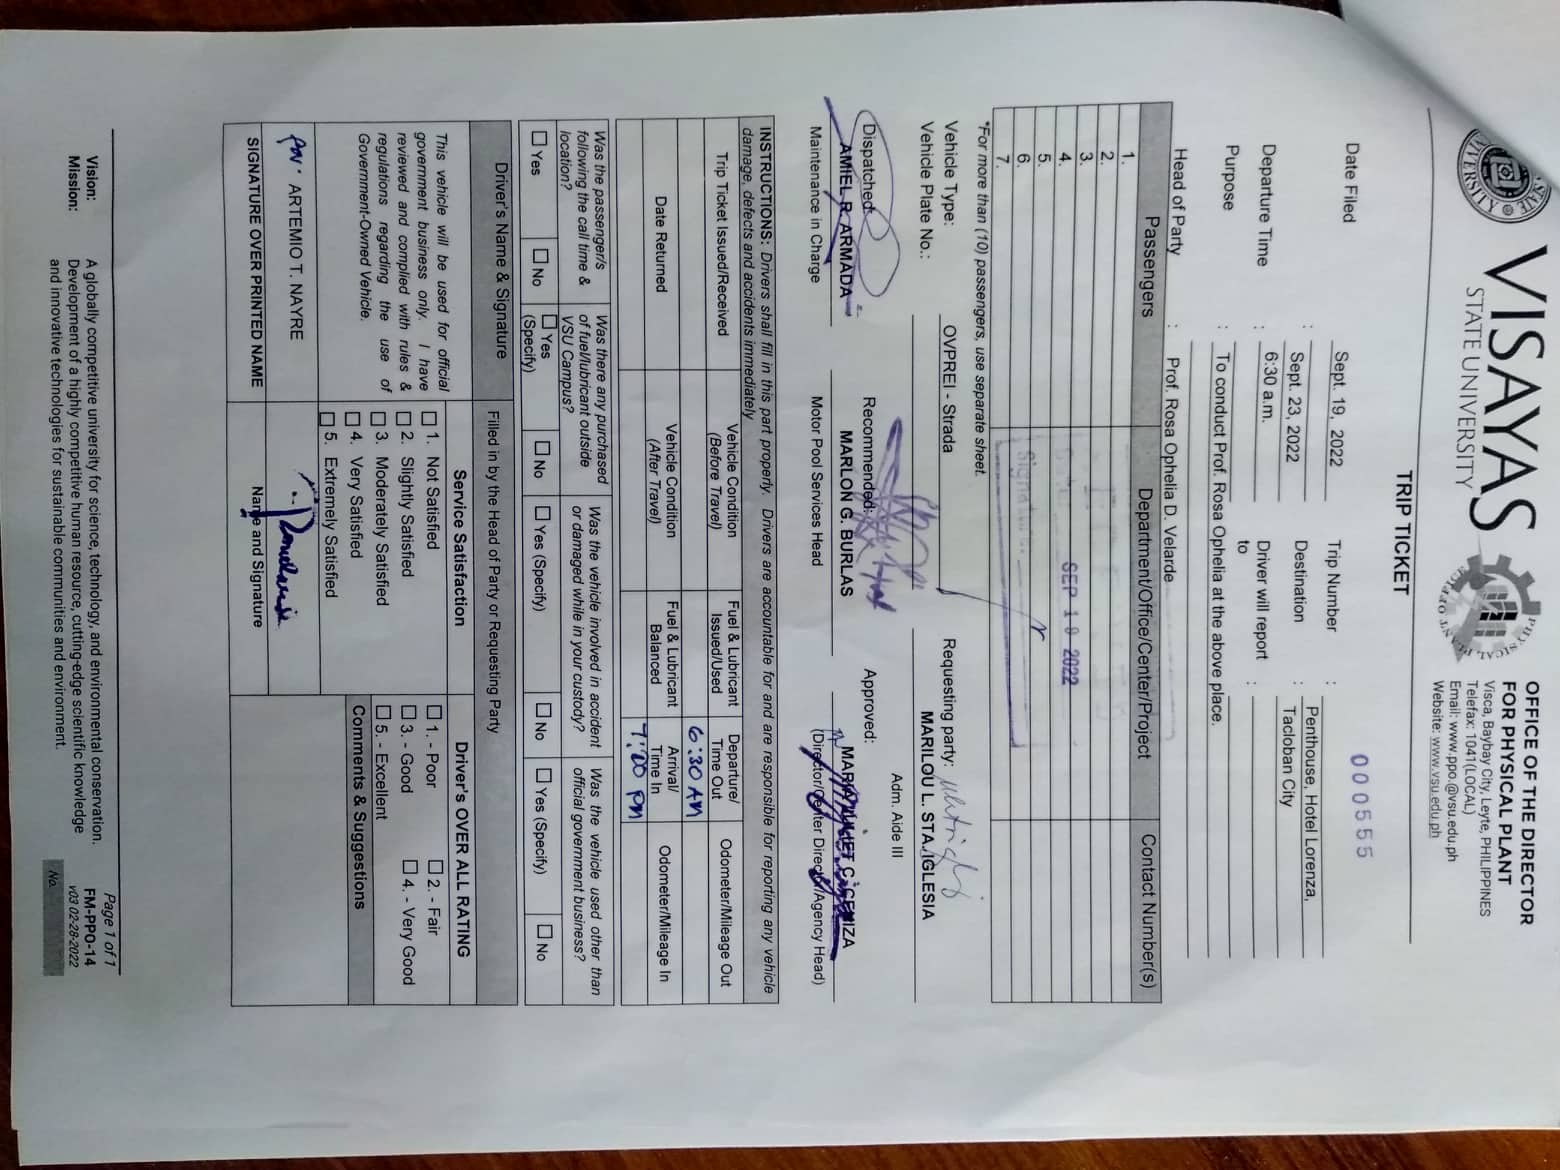 VISAYAS
STATE UNIVERSITY
OFFICE OF THE DIRECTOR
FOR PHYSICAL PLANT
Visca, Baybay City, Leyte, PHILIPPINES
Telefax: 1041(LOCAL)
Email: www.ppo@vsu.edu.ph
Website: www.vsu.edu.ph
TRIP TICKET
000555
Date Filed : Sept. 19, 2022 Trip Number :
Departure Time : Sept. 23, 2022 Destination : Penthouse, Hotel Lorenza, Tacloban City
6:30 a.m. Driver will report to :
Purpose : To conduct Prof. Rosa Ophelia at the above place.
Head of Party : Prof. Rosa Ophelia D. Velarde
Passengers Department/Office/Center/Project Contact Number(s)
1.
2.
3.
4. SEP 19 2022
5.
6.
7.
*For more than (10) passengers, use separate sheet.
Vehicle Type: OVPREI - Strada Requesting party:
Vehicle Plate No.: MARILOU L. STA. IGLESIA
Adm. Aide III
Dispatched: Recommended: Approved:
AMIEL R. ARMADA MARLON G. BURLAS
Maintenance in Charge Motor Pool Services Head (Director/Center Director/Agency Head)
INSTRUCTIONS: Drivers shall fill in this part properly. Drivers are accountable for and are responsible for reporting any vehicle
damage, defects and accidents immediately
Trip Ticket Issued/Received Vehicle Condition (Before Travel) Fuel & Lubricant Issued/Used Departure/ Time Out Odometer/Mileage Out
6:30 AM
Date Returned Vehicle Condition (After Travel) Fuel & Lubricant Balanced Arrival/ Time In Odometer/Mileage In
7:00 PM
Was the passenger/s following the call time & location? Was there any purchased of fuel/lubricant outside VSU Campus? Was the vehicle involved in accident or damaged while in your custody? Was the vehicle used other than official government business?
Yes No Yes (Specify) No Yes (Specify) No Yes (Specify) No
Driver's Name & Signature Filled in by the Head of Party or Requesting Party
Service Satisfaction Driver's OVER ALL RATING
This vehicle will be used for official
government business only. I have
reviewed and complied with rules &
regulations regarding the use of
Government-Owned Vehicle.
1. Not Satisfied
2. Slightly Satisfied
3. Moderately Satisfied
4. Very Satisfied
5. Extremely Satisfied
1. - Poor 2. - Fair
3. - Good 4. - Very Good
5. - Excellent
Comments & Suggestions
ARTEMIO T. NAYRE
SIGNATURE OVER PRINTED NAME Name and Signature
Vision: A globally competitive university for science, technology, and environmental conservation.
Mission: Development of a highly competitive human resource, cutting-edge scientific knowledge
and innovative technologies for sustainable communities and environment.
Page 1 of 1
FM-PPO-14
v03 02-28-2022
No.